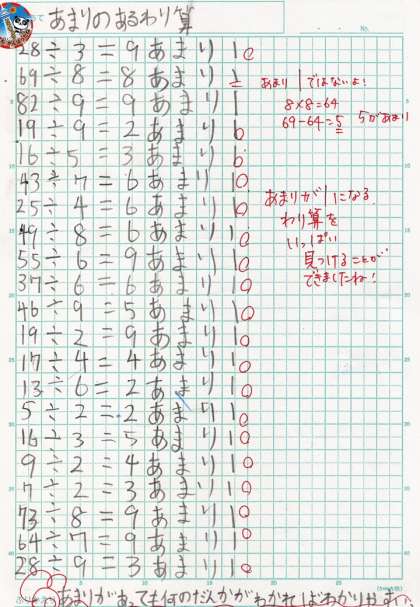 あまりのあるわり算
No.
28÷3=9あまり1
69÷8=8あまり1
あまり1ではないよ!
8×8=64
69-64=5 5があまり
82÷9=9あまり1
19÷9=2あまり1
16÷5=3あまり1
43÷7=6あまり1
25÷4=6あまり1
49÷8=6あまり1
55÷6=9あまり1
37÷6=6あまり1
46÷9=5あまり1
19÷2=9あまり1
17÷4=4あまり1
13÷6=2あまり1
5÷2=2あまり1
16÷3=5あまり1
9÷2=4あまり1
7÷2=3あまり1
73÷8=9あまり1
64÷7=9あまり1
28÷9=3あまり1
あまりが1になる
わり算を
いっぱい
見つけることが
できましたね!
あまりがあっても何のだんかがわかればわかります。